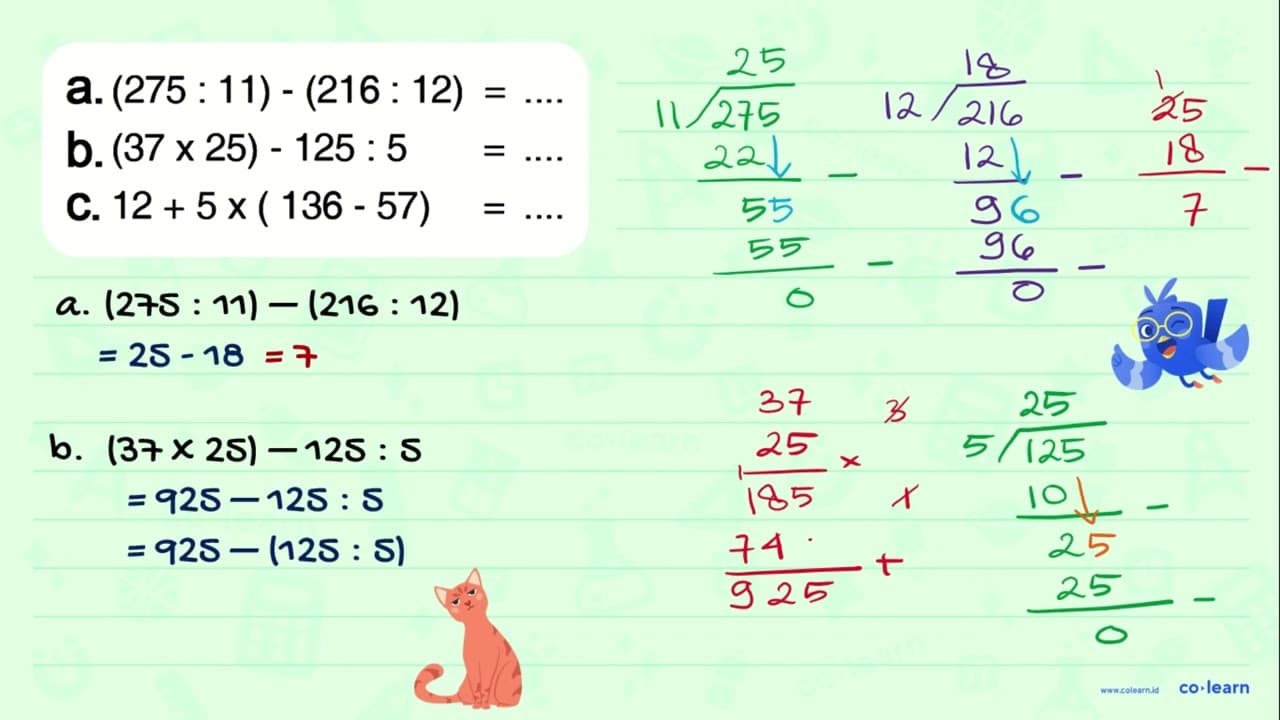 a. (275 : 11) - (216 : 12) = ....
b. (37 x 25) - 125 : 5 = ....
c. 12 + 5 x ( 136 - 57) = ....
a. (275 : 11) – (216 : 12)
= 25 - 18 = 7
b. (37 x 25) – 125 : 5
= 925 – 125 : 5
= 925 – (125 : 5)
25
11 275
22 –
55
55 –
0
18
12 216
12 –
96
96 –
0
1
25
18 –
7
37
25 x
1
185
74 .
925 +
3
x
25
5 125
10 –
25
25 –
0
co·learn
www.colearn.id co·learn